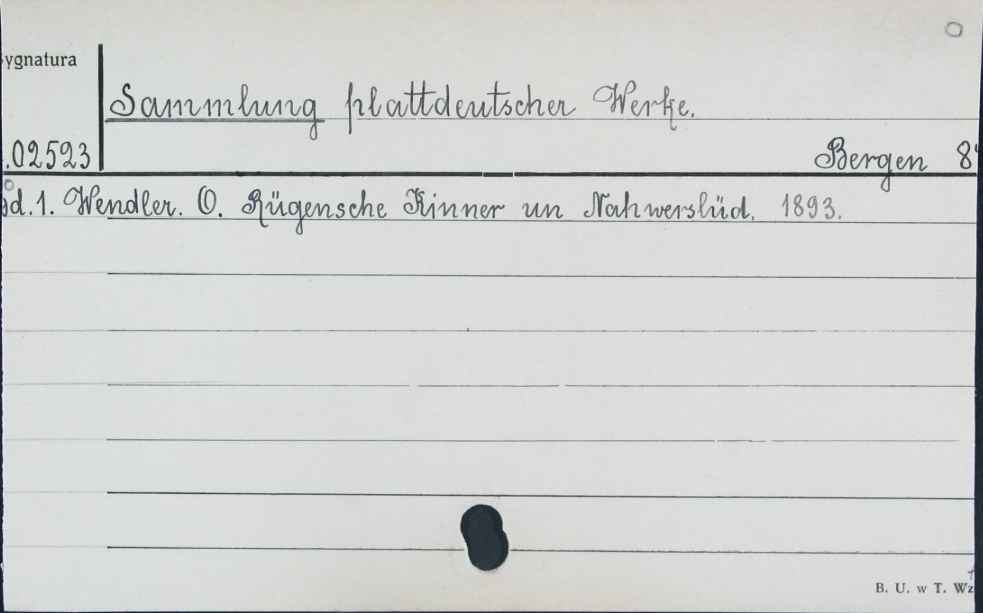 ygnatura
Sammlung plattdeutscher Werke.
.02523
Bergen 8°
d.1. Wendler. O. Rügensche Kinner un Nahwerslüd. 1893.
B. U. w T. Wz